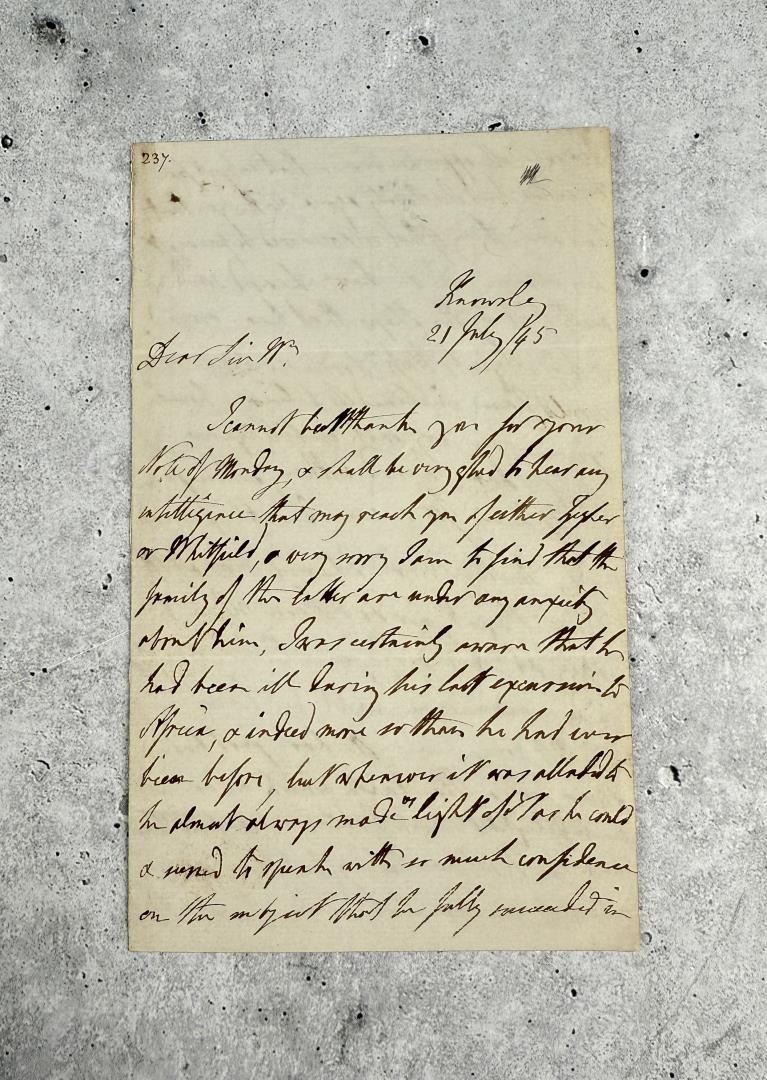 237.
Knowsley
21 July /45
Dear Sir Wm.
I cannot but thank you for your
Note of Monday, & shall be very glad to hear any
intelligence that may reach you of either
or Whitfield, & very sorry I am to find that the
family of the latter are under any anxiety
about him, I was certainly aware that he
had been ill during his last excursion to
Africa, & indeed more so than he had ever
been before, but whenever it was alluded to
he almost always made as light of it as he could
& seemed to speak with so much confidence
on the subject that he fully succeeded in